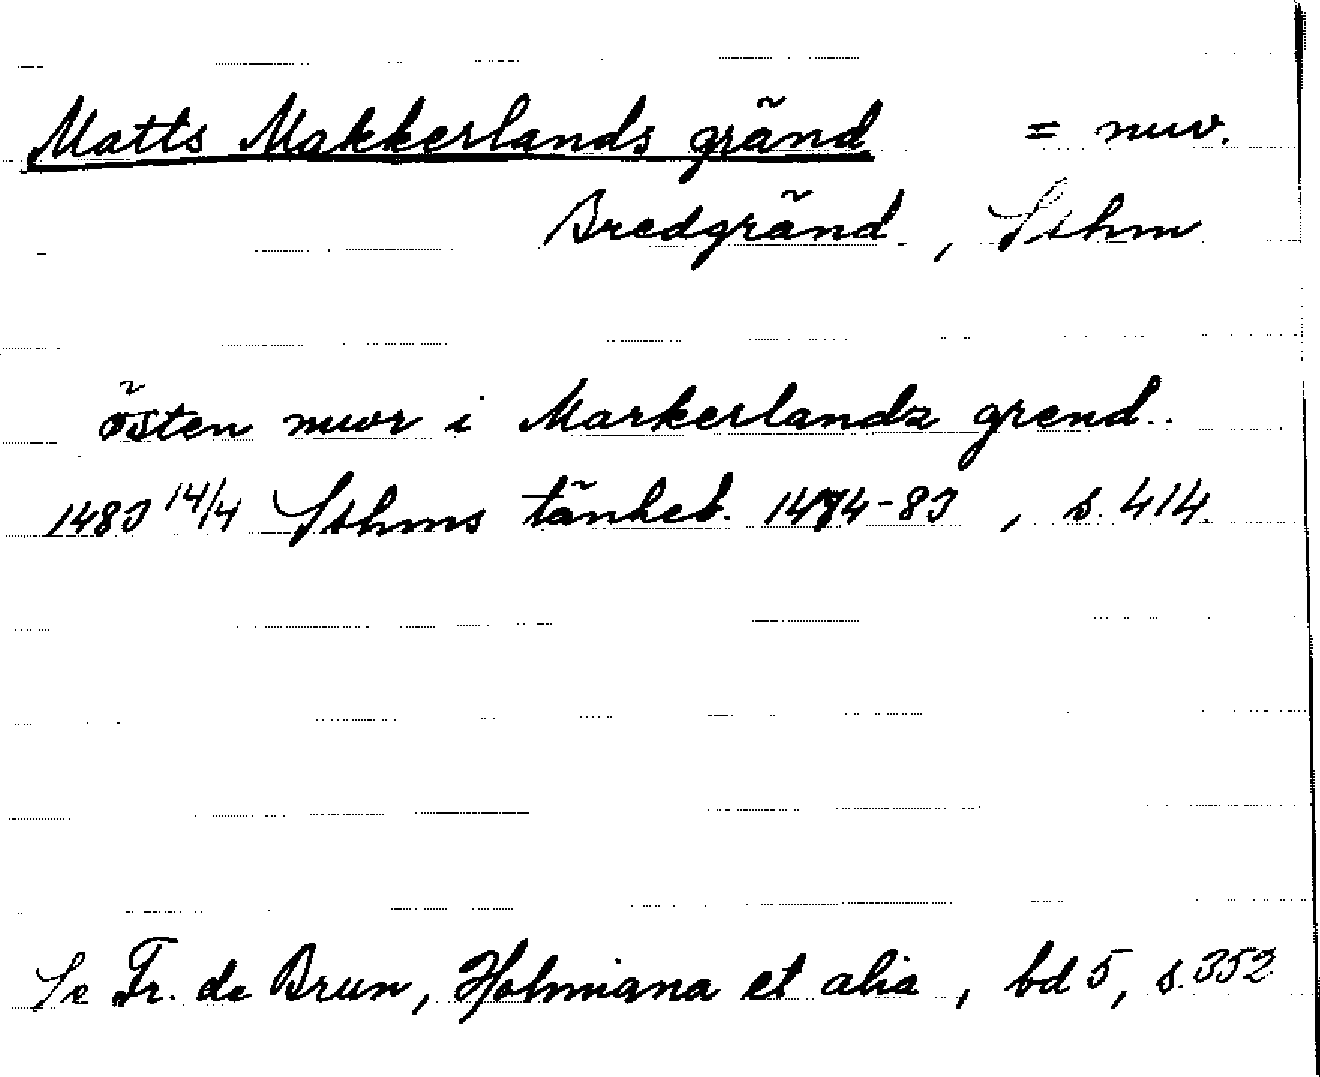 Matts Makkerlands gränd = nuv.
Bredgränd, Sthm
östen muor i Markerlandz grend.
1483 14/4 Sthms tänkeb. 1474-83, s. 414
Se Fr. de Brun, Holmiana et alia, bd 5, s. 352